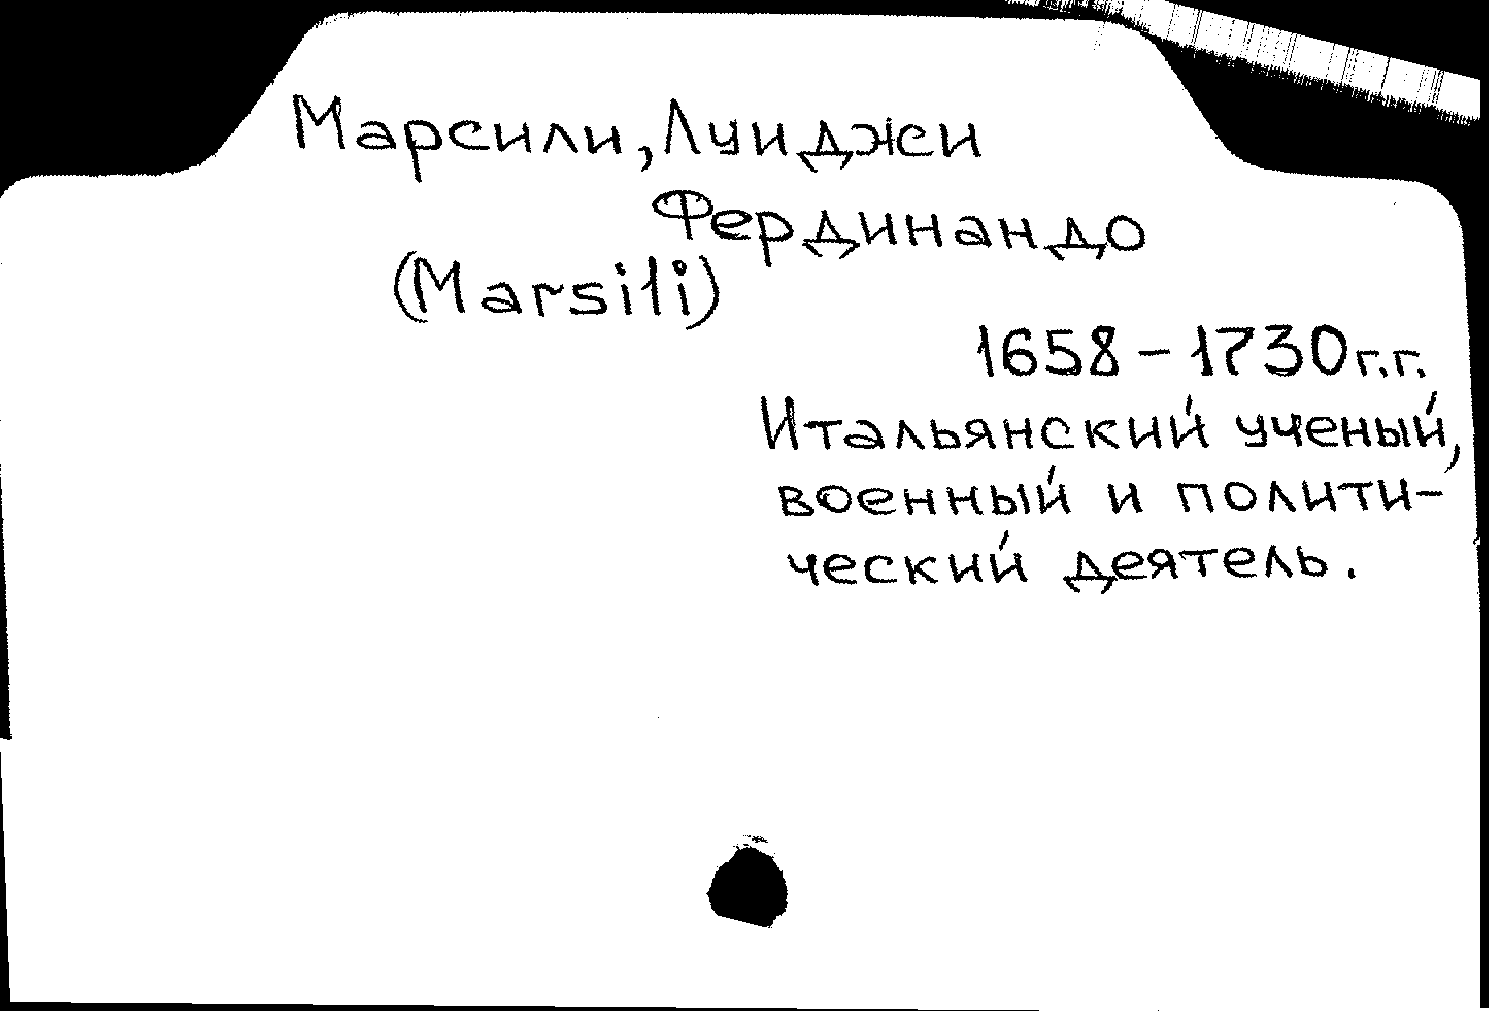 Марсили, Луиджи
Фердинандо
(Marsili)
1658 – 1730 г.г.
Итальянский ученый,
военный и полити-
ческий деятель.